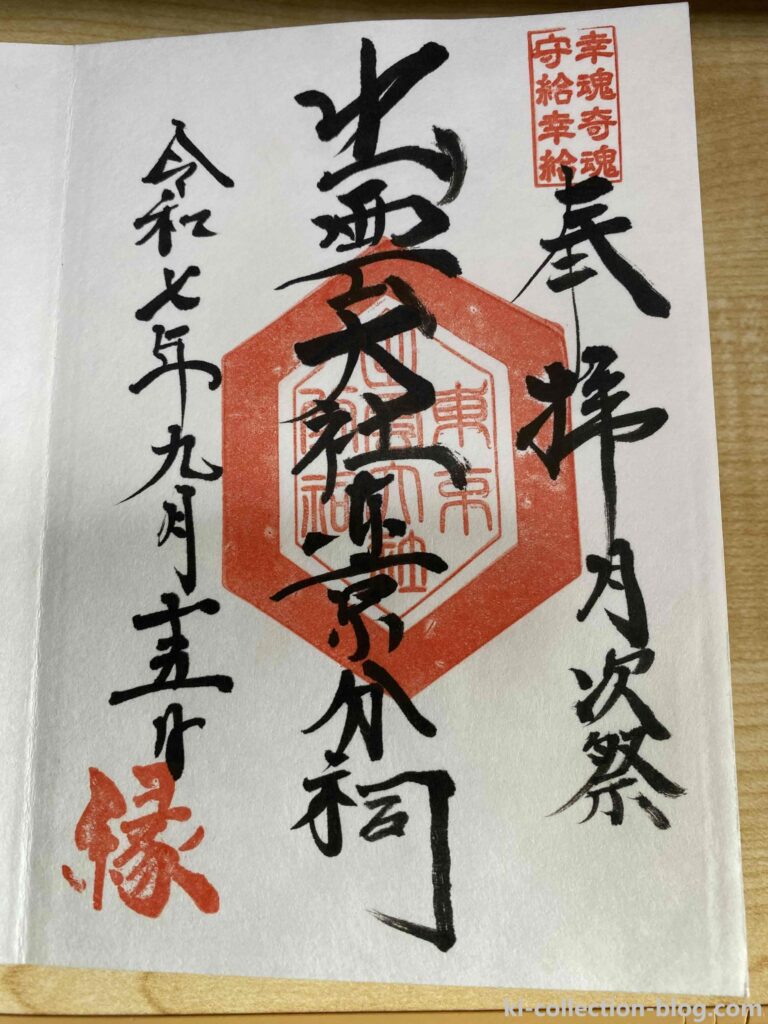 幸魂奇魂
守給幸給
奉拝 月次祭
出雲大社東京分祠
東京
出雲大社
分祠
令和七年九月十五日
縁
kl-collection-blog.com